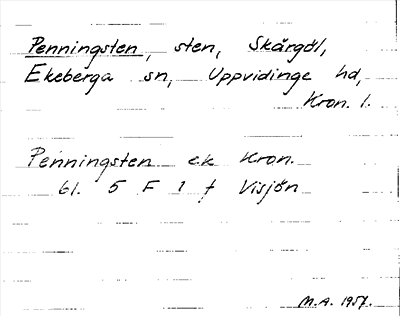 Penningsten, sten, Skärgöl,
Ekeberga sn, Uppvidinge hd,
Kron. l.
Penningsten ek Kron.
61. 5 F 1 f Visjön
M.A. 1957.